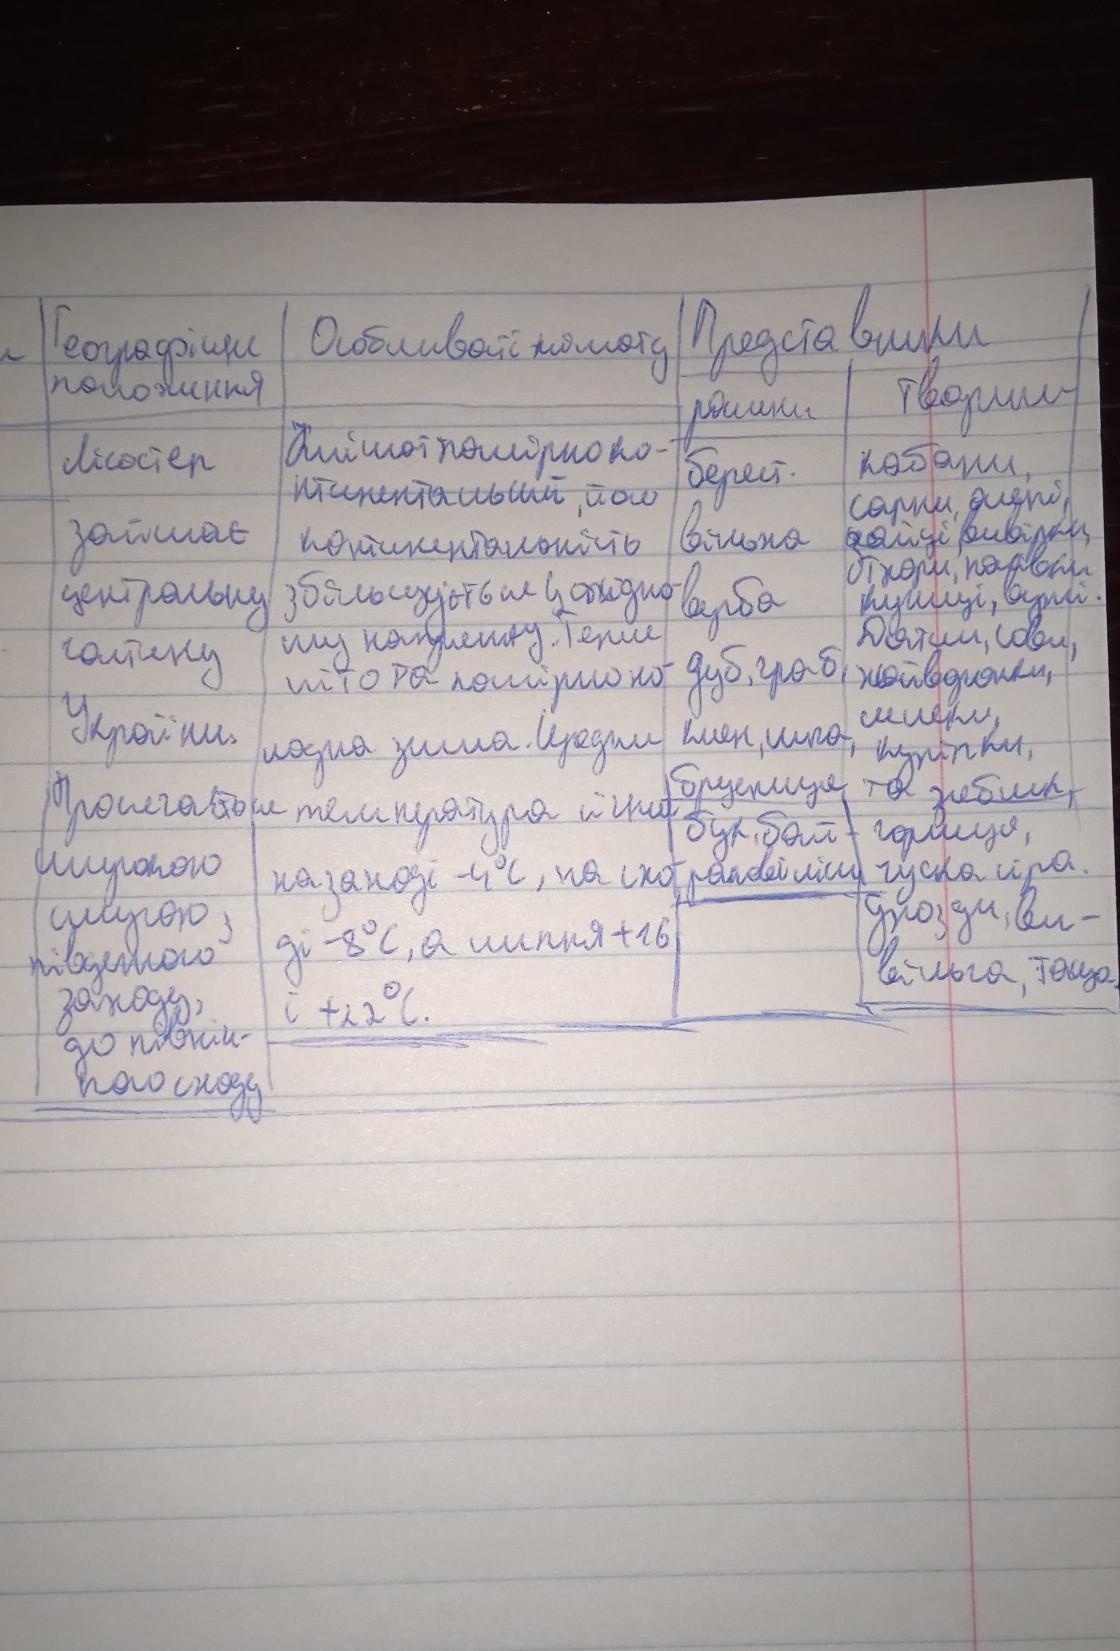 Географічне
положення
Особливості клімату
Представники
рослини
тварини
Лісостеп
займає
центральну
частину
України.
Пролягає
широкою
смугою з
південного
заходу,
до північ-
ного сходу
Клімат помірно ко-
нтинентальний, його
континентальність
збільшується у східно
му напрямку. Тепле
літо та помірно хо
лодна зима. Середня
температура січня
на заході -4°С, на схо
ді -8°С, а липня +16
і +22°С.
берест.
вільха
верба
дуб, граб,
клен, липа,
брусниця
бук, бай-
рачні ліси
кабани,
сарни, олені,
зайці, вивірки,
тхори,
куниці, вузькі.
Дятли, сови,
жайворонки,
куріпки,
та зяблик,
горлиця,
гуска сіра.
Дрозди, ви-
вільга, тощо.